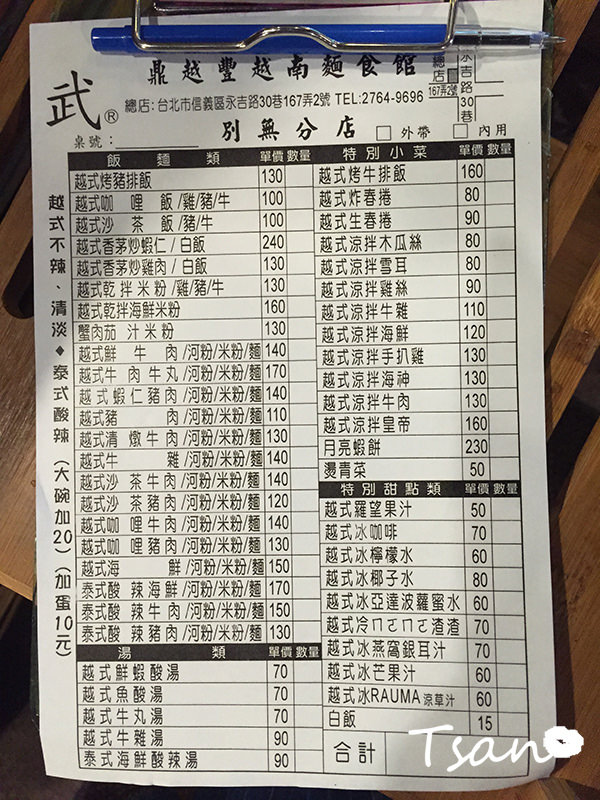 武®
鼎越豐越南麵食館
總店:台北市信義區永吉路30巷167弄2號 TEL:2764-9696
總店
167弄2號
永吉路30巷
桌號:
別無分店 □ 外帶 □ 內用
越式不辣、清淡◆泰式酸辣(大碗加20)(加蛋10元)
飯麵類 單價 數量
越式烤豬排飯 130
越式咖哩飯/雞/豬/牛 100
越式沙茶飯/豬/牛 100
越式香茅炒蝦仁/白飯 240
越式香茅炒雞肉/白飯 130
越式乾拌米粉/雞/豬/牛 130
越式乾拌海鮮米粉 160
蟹肉茄汁米粉 130
越式鮮牛肉/河粉/米粉/麵 140
越式牛肉牛丸/河粉/米粉/麵 170
越式蝦仁豬肉/河粉/米粉/麵 140
越式豬肉/河粉/米粉/麵 110
越式清燉牛肉/河粉/米粉/麵 130
越式牛雜/河粉/米粉/麵 140
越式沙茶牛肉/河粉/米粉/麵 140
越式沙茶豬肉/河粉/米粉/麵 120
越式咖哩牛肉/河粉/米粉/麵 140
越式咖哩豬肉/河粉/米粉/麵 130
越式海鮮/河粉/米粉/麵 150
泰式酸辣海鮮/河粉/米粉/麵 170
泰式酸辣牛肉/河粉/米粉/麵 150
泰式酸辣豬肉/河粉/米粉/麵 130
湯類 單價 數量
越式鮮蝦酸湯 70
越式魚酸湯 70
越式牛丸湯 70
越式牛雜湯 90
泰式海鮮酸辣湯 90
特別小菜 單價 數量
越式烤牛排飯 160
越式炸春捲 80
越式生春捲 90
越式涼拌木瓜絲 80
越式涼拌雪耳 80
越式涼拌雞絲 90
越式涼拌牛雜 110
越式涼拌海鮮 120
越式涼拌手扒雞 130
越式涼拌海神 130
越式涼拌牛肉 130
越式涼拌皇帝 160
月亮蝦餅 230
燙青菜 50
特別甜點類 單價 數量
越式羅望果汁 50
越式冰咖啡 70
越式冰檸檬水 60
越式冰椰子水 80
越式冰亞達波蘿蜜水 60
越式冷ㄇㄛㄇㄛ渣渣 70
越式冰燕窩銀耳汁 70
越式冰芒果汁 60
越式冰RAUMA涼草汁 60
白飯 15
合計
Tsan